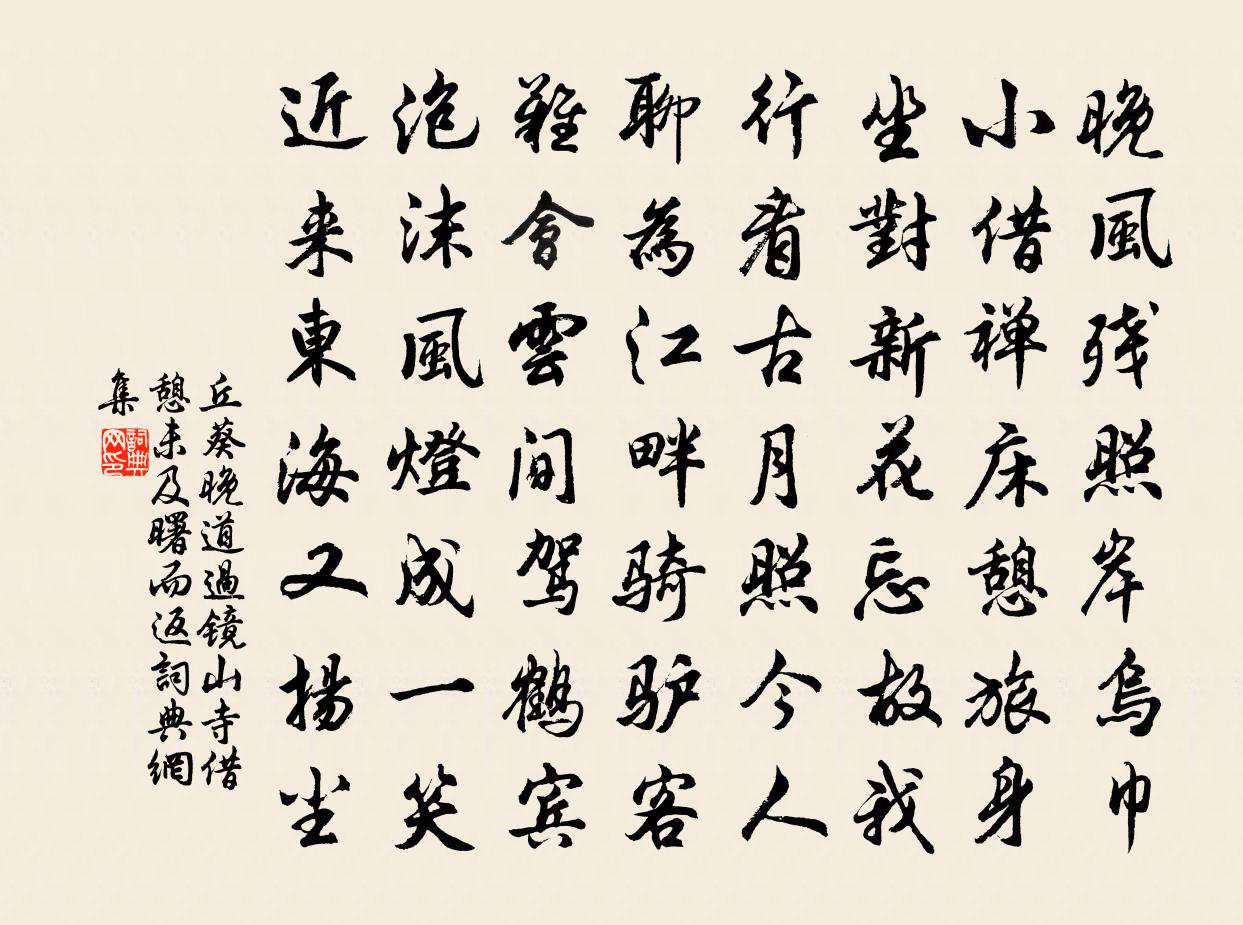 晚風残照岸烏巾
小借禅床憩旅身
坐對新花忘故我
行看古月照今人
聊為江畔骑驴客
難會雲间駕鹤宾
泡沫風燈成一笑
近来東海又揚尘
丘葵晚道過鏡山寺借
憩未及曙而返詞典網
集
詞典
网印